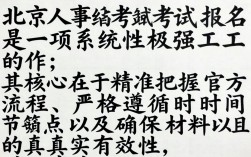 北京人事考试考试报名
是一项系统性极强工工
的作；
其核心在于精准把握官方
流程、严格遵循时时间
节点以及确保材料以且
的真真实有效性，